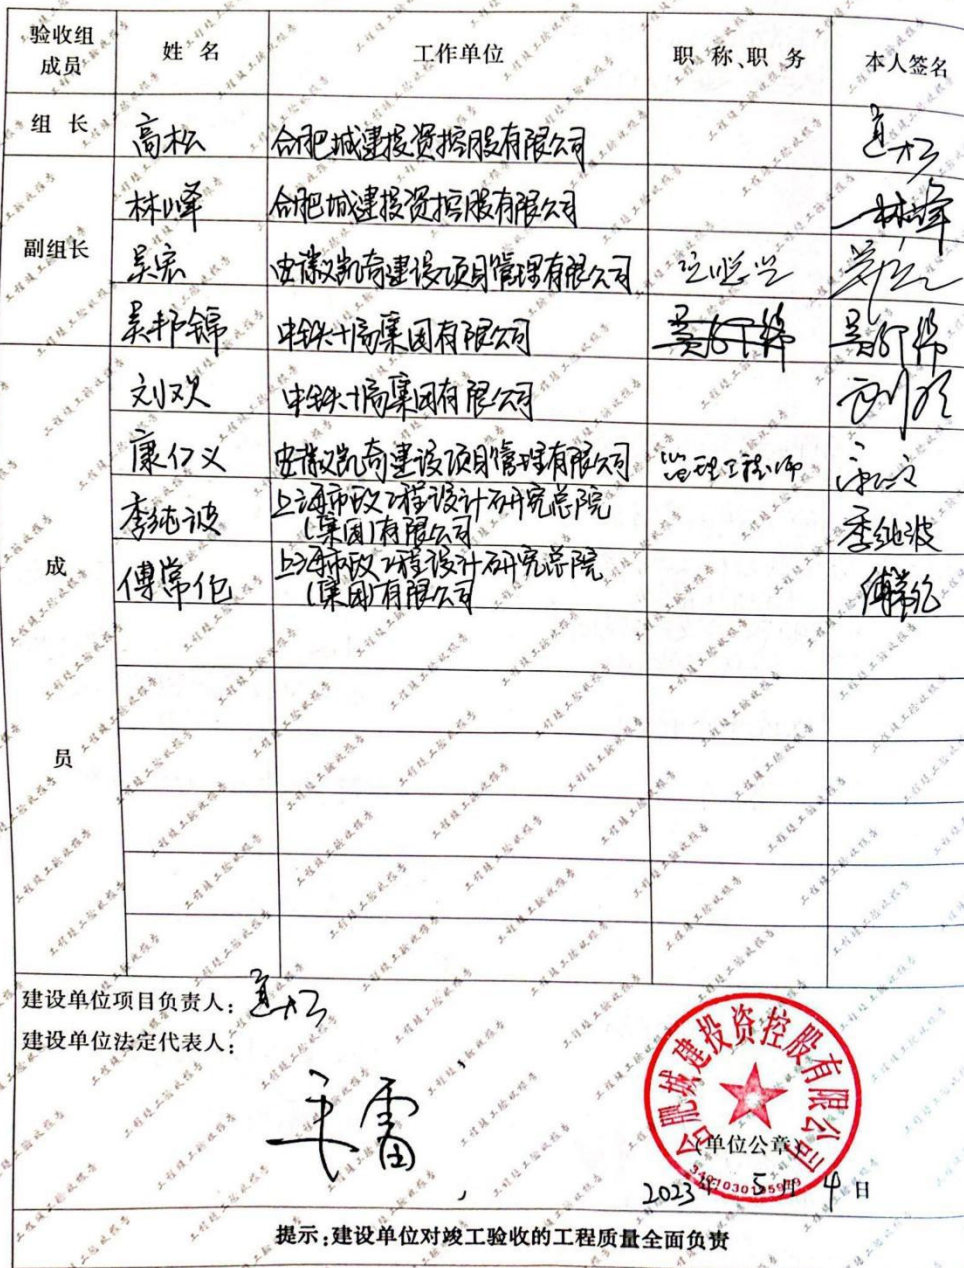 验收组
成员
姓 名
工作单位
职 称、职 务
本人签名
组 长
高松
合肥城建投资控股有限公司
高松
副组长
林峰
合肥城建投资控股有限公司
林峰
吴宏
安徽凯奇建设项目管理有限公司
吴邦锦
中铁十局集团有限公司
吴邦锦
吴邦锦
成
员
刘欢
中铁十局集团有限公司
刘欢
康仁义
安徽凯奇建设项目管理有限公司
监理工程师
李纯波
上海市政工程设计研究总院
(集团)有限公司
李纯波
傅常伦
上海市政工程设计研究总院
(集团)有限公司
傅常伦
建设单位项目负责人：高松
建设单位法定代表人：
合肥城建投资控股有限公司
(单位公章)
2023年 5月 4日
提示：建设单位对竣工验收的工程质量全面负责
工程竣工验收报告